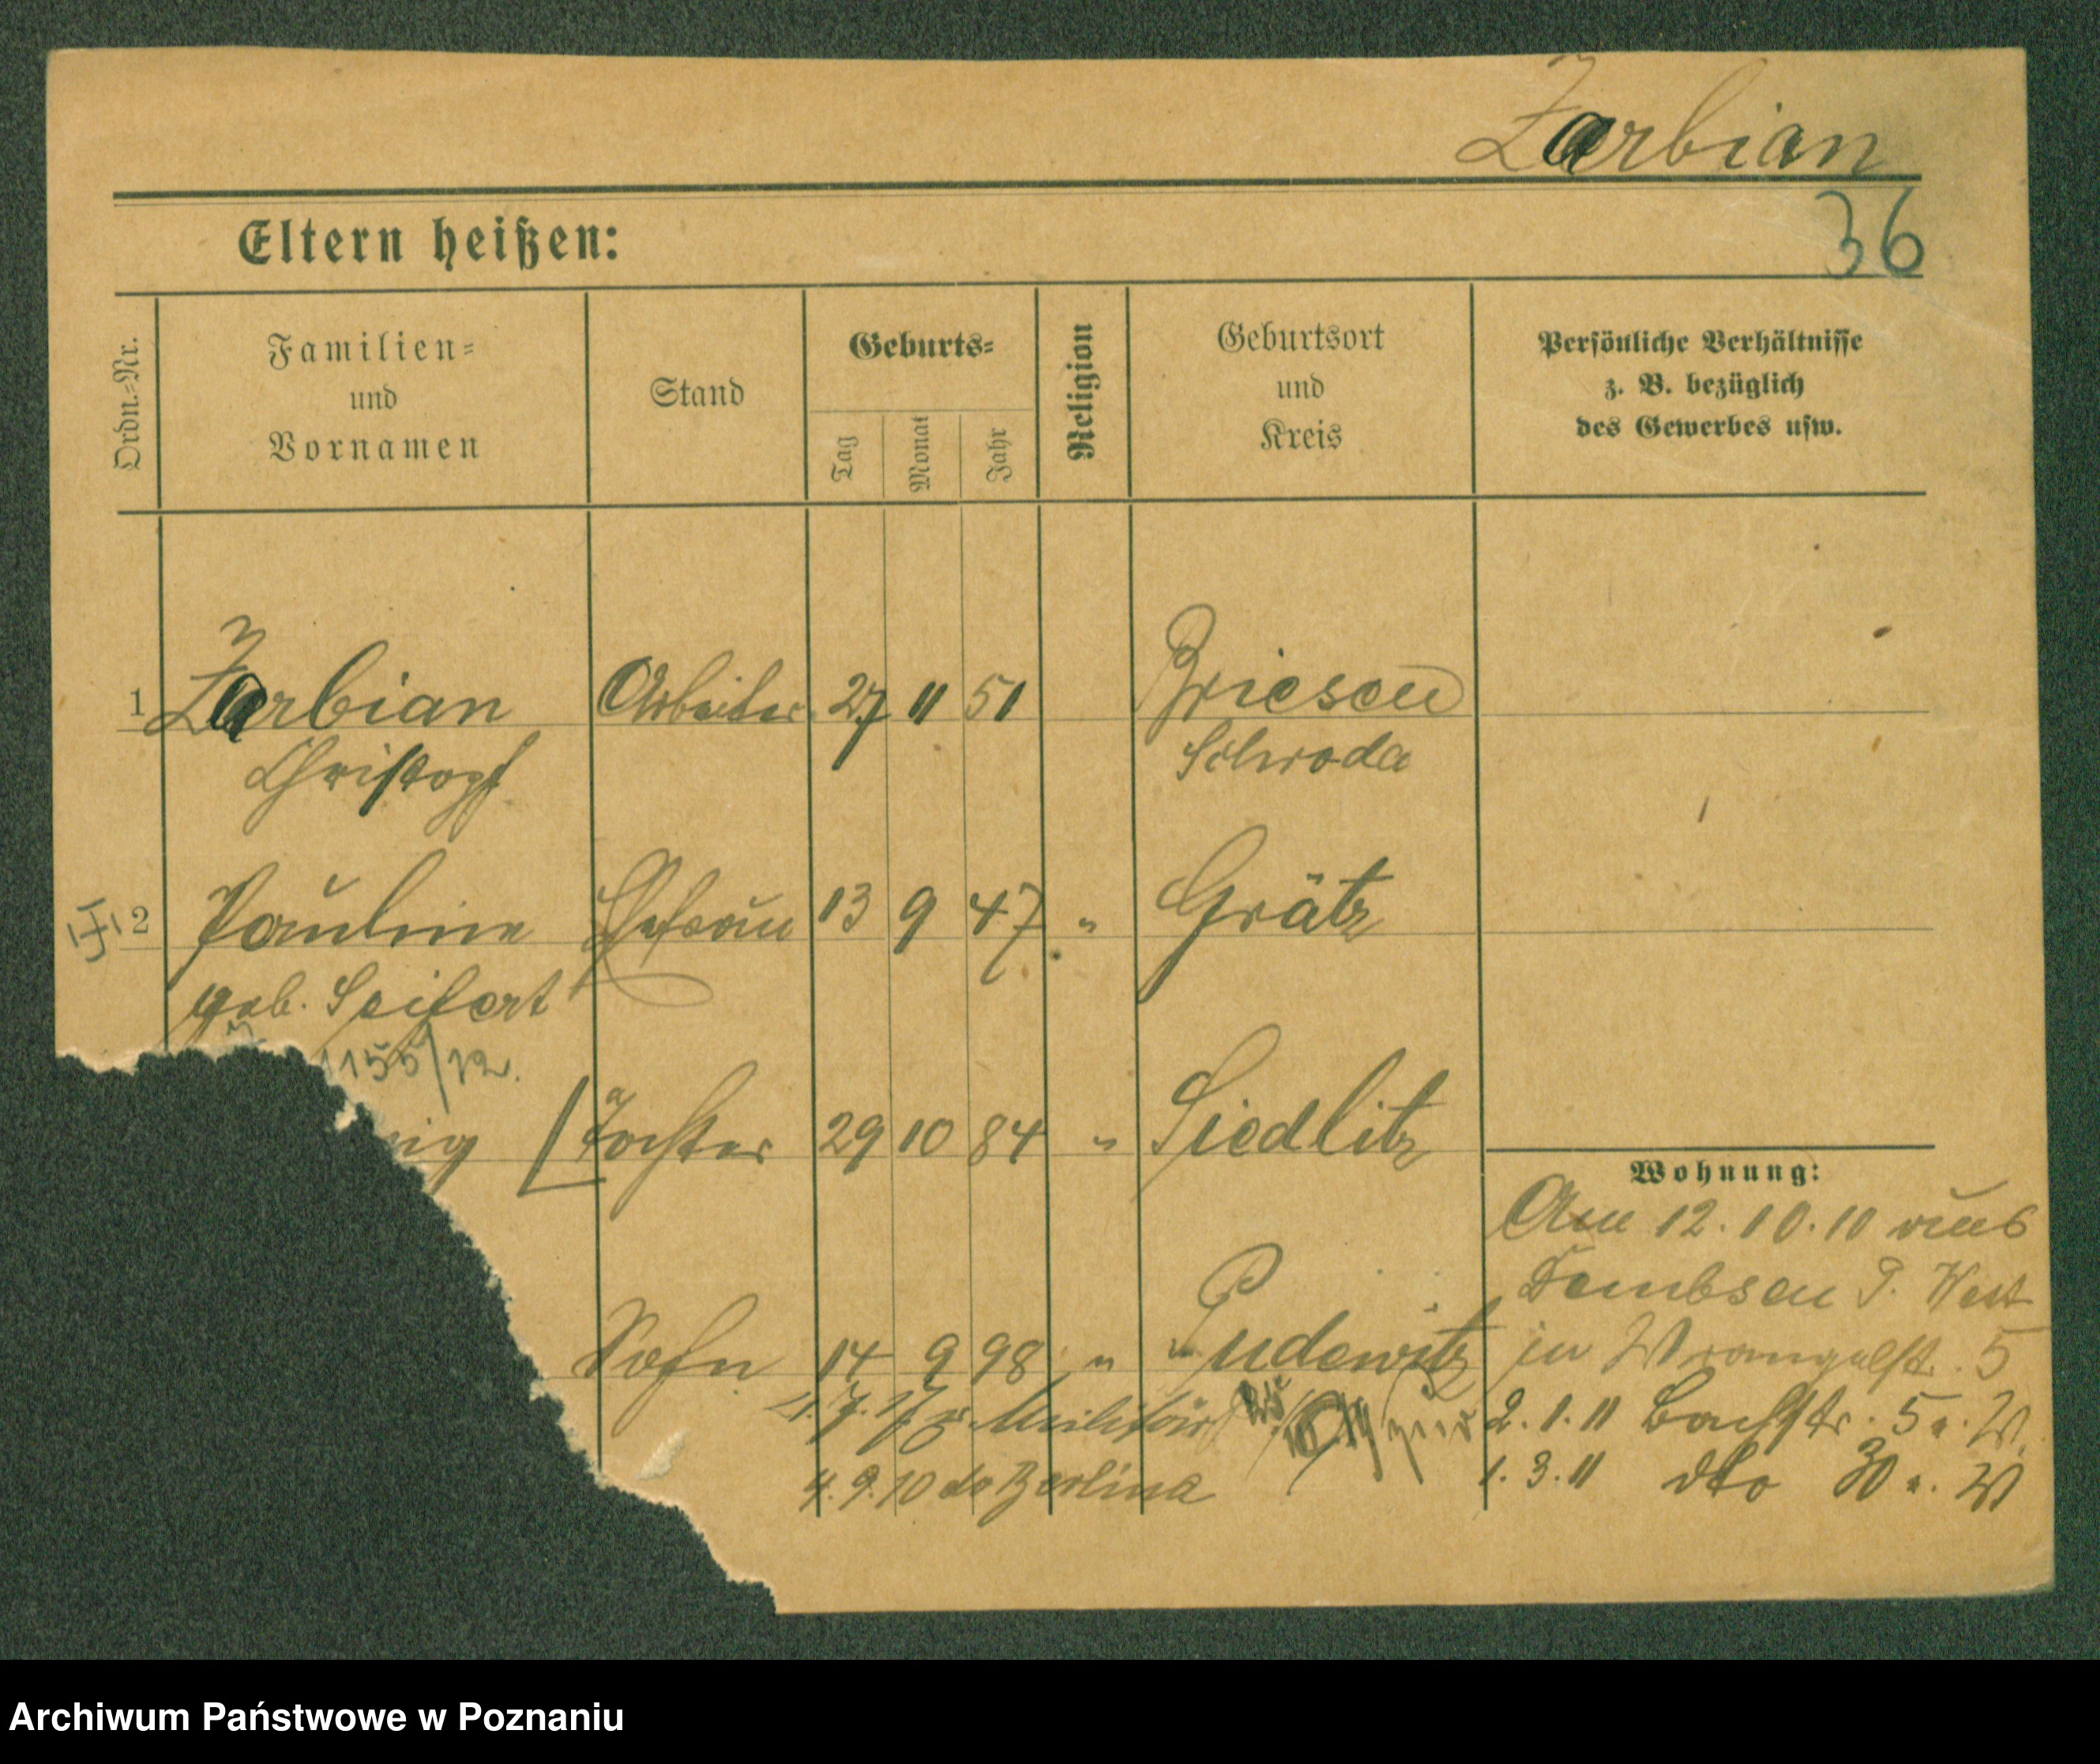 Zarbian
36
Eltern heißen:
Ordn.-Nr.
Familien- und Vornamen
Stand
Geburts-
Tag
Monat
Jahr
Religion
Geburtsort und Kreis
Persönliche Verhältnisse
z. B. bezüglich
des Gewerbes usw.
1 Zarbian Arbeiter 27 11 51 Briesen
Christoph Schroda
2 Pauline Ehefrau 13 9 47 " Grätz
geb. Seifert
1155/12.
ig Tochter 29 10 84 " Siedlitz
Wohnung:
Am 12.10.10 aus
Dembsen P. West
in Wrangelstr. 5
Sohn 14 9 98 " " Pudewitz
1.7.17 Militär
2.1.11 Bachstr. 5 W.
4.9.10
1.3.11 dto 30 W
Archiwum Państwowe w Poznaniu